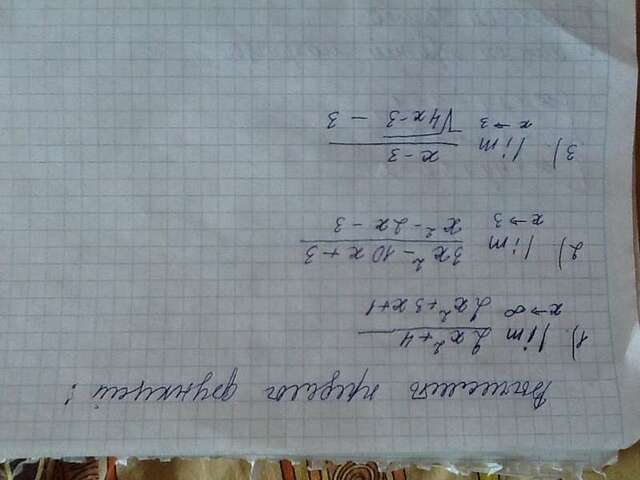 Вычислить пределы функций:
1). lim 2x²+4
x→∞ 2x²+3x+1
2). lim 3x²-10x+3
x→3 x²-2x-3
3). lim x-3
x→3 √4x-3 - 3